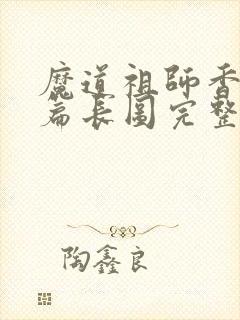 魔道祖师香
篇长图完整
陶鑫良